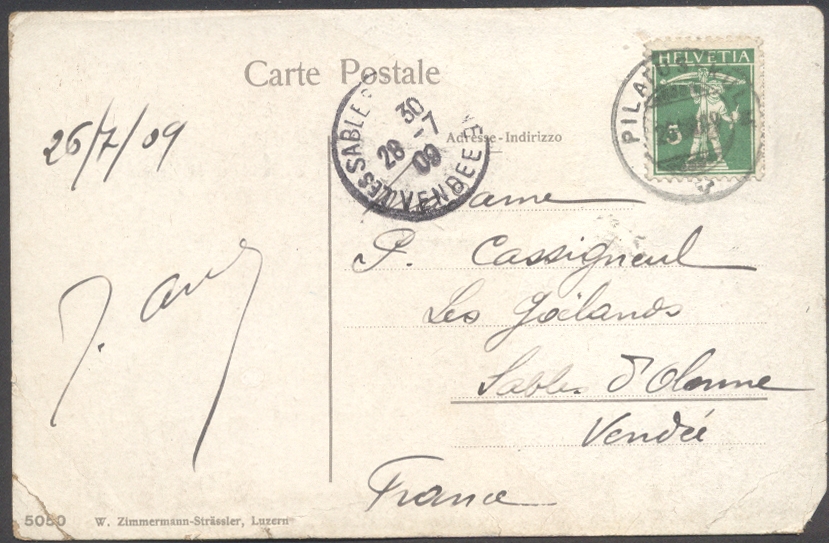 Carte Postale
HELVETIA
5
PILATUS
26/7/09
SABLES
30
28 -7
09
VENDEE
Adresse-Indirizzo
Madame
P. Cassigneul
Les Goëlands
Sables d'Olonne
Vendée
France
5050 W. Zimmermann-Strässler, Luzern